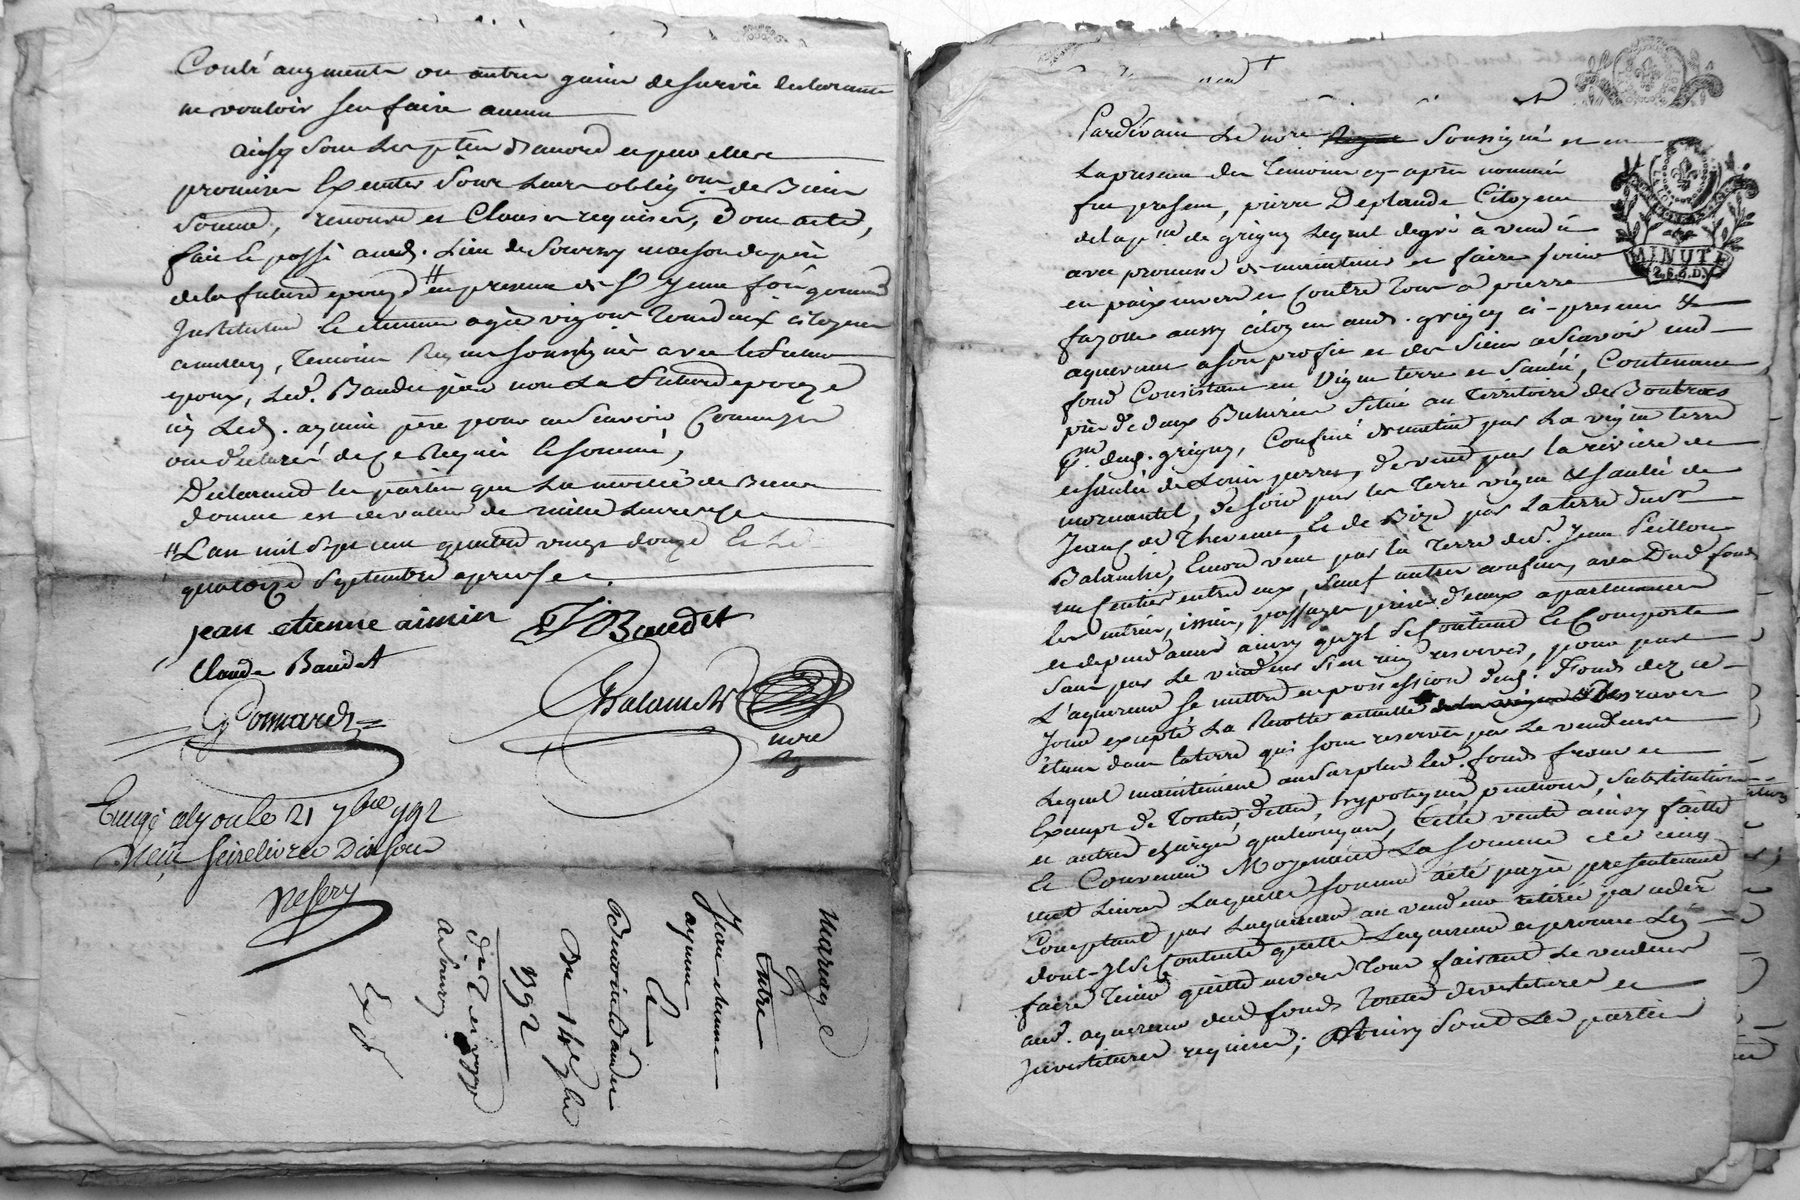 augment ou autre gain de survie declarant
ne vouloir s'en faire aucun
ainsy sont les ptes d'accord et pour
promises executer sous leurs oblig.ons de Biens
soumis, renonce et Clauses requises, Dont acte,
fait et passé aud. Lieu de Sourcy maison du père
de la future epouze # en presence de
Instituteur et etienne vigneron citoyens
temoins Requis soussignés avec le futur
epoux, Led. Baudet père non La future epouze
ny Led. aymin père pour ne Scavoir Comme ils
ont declaré de Ce Requis et sommé,
Declarant les parties que La moitié des Biens
donné est de valeur de mille Livres
# L'an mil Sept cent quatre vingt douze Et Le
quatorze Septembre
jean etienne aimin Baudet
Claude Baudet
nore
Rl
a lyon le 21 7bre 1792
Reçu seize livres Dix sous
mariage
Entre
Jean-etienne
aymin
Et
Benoite Baudet
Du 14 7bre
1792
Exp
Pardevant Le nore Royal Soussigné et en
La presence des Temoins cy-après nommés
fut present, pierre Deplaude Citoyen
de la psse de grigny Lequel de gré a vendu
avec promesse de maintenir et faire jouir
en paix envers et Contre Tous a pierre
fayolle aussy citoyen aud. grigny ci-present &
aquereur a son profit et des Siens a Scavoir un
fond Consistant en Vigne terre et Saulée, Contenant
près de deux Bicherées Situé au Territoire de Boutras
psse dud. grigny, Confiné de matin par La vigne terre
et saulée de Louis perret, de vent par la riviere de
mornantet, de soir par les Terre vigne & saulée de
Jean de Thevenet, Et de Bize par La terre du Sr
Balanche, Encor vent par la Terre du Sr. Jean Peillon
un sentier entre deux, Sauf autres confins, avec Dud. fond
les entrées, issues, passages prises d'eaux apartenances
et dependances ainsy qu'il Se Contient Et Comporte
Sans par Le vendeur S'en rien reserver, pour par
L'aquereur Se mettre en possession dud. Fonds dez ce
Jour excepté La Recolte actuelle raves
étant dans la terre qui sont reservés par Le vendeur
Lequel maintiendra au Surplus Led. fonds franc et
Exempt de Toutes dettes, hypoteques pensions, Substitutions
et autres charges quelconques, Cette vente ainsy faitte
Et Convenue Moyenant La somme de cinq
cent Livres Laquelle somme a été payée presentement
Comptant par L'aquereur au vendeur retirée par ce dernier
dont il Se Contente quitte L'aquereur et promet L'en
faire Tenir quitte envers Tous faisant Le vendeur
aud. aquereur dud. fonds Toutes devestitures et
Investitures requises; Ainsy Sont Les parties
MINUTE